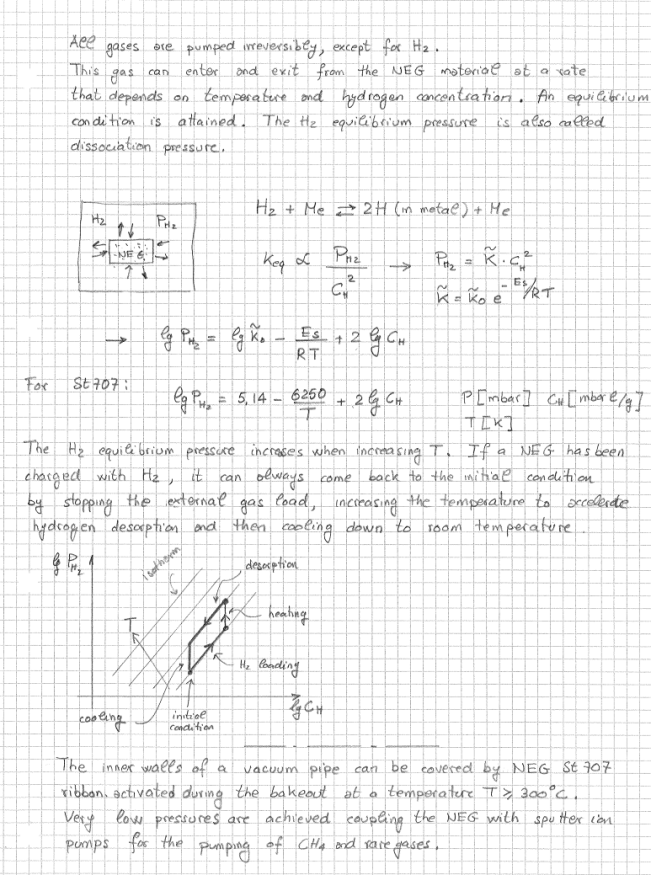 All gases are pumped irreversibly, except for H₂.
This gas can enter and exit from the NEG material at a rate
that depends on temperature and hydrogen concentration. An equilibrium
condition is attained. The H₂ equilibrium pressure is also called
dissociation pressure.
H₂ + Me ⇄ 2H (in metal) + Me
H₂ P_H₂
NEG
K_eq ∝ P_H₂ / C_H² → P_H₂ = K̃ · C_H²
K̃ = K̃₀ e^(-Es/RT)
→ lg P_H₂ = lg K̃₀ - Es/RT + 2 lg C_H
For St 707: lg P_H₂ = 5,14 - 6250/T + 2 lg C_H P [mbar] C_H [mbar l/g]
T [K]
The H₂ equilibrium pressure increases when increasing T. If a NEG has been
charged with H₂, it can always come back to the initial condition
by stopping the external gas load, increasing the temperature to accelerate
hydrogen desorption and then cooling down to room temperature.
lg P_H₂
isotherm
desorption
T
heating
H₂ loading
lg C_H
cooling
initial
condition
The inner walls of a vacuum pipe can be covered by NEG St 707
ribbon, activated during the bakeout at a temperature T ⩾ 300°C.
Very low pressures are achieved coupling the NEG with sputter ion
pumps for the pumping of CH₄ and rare gases.